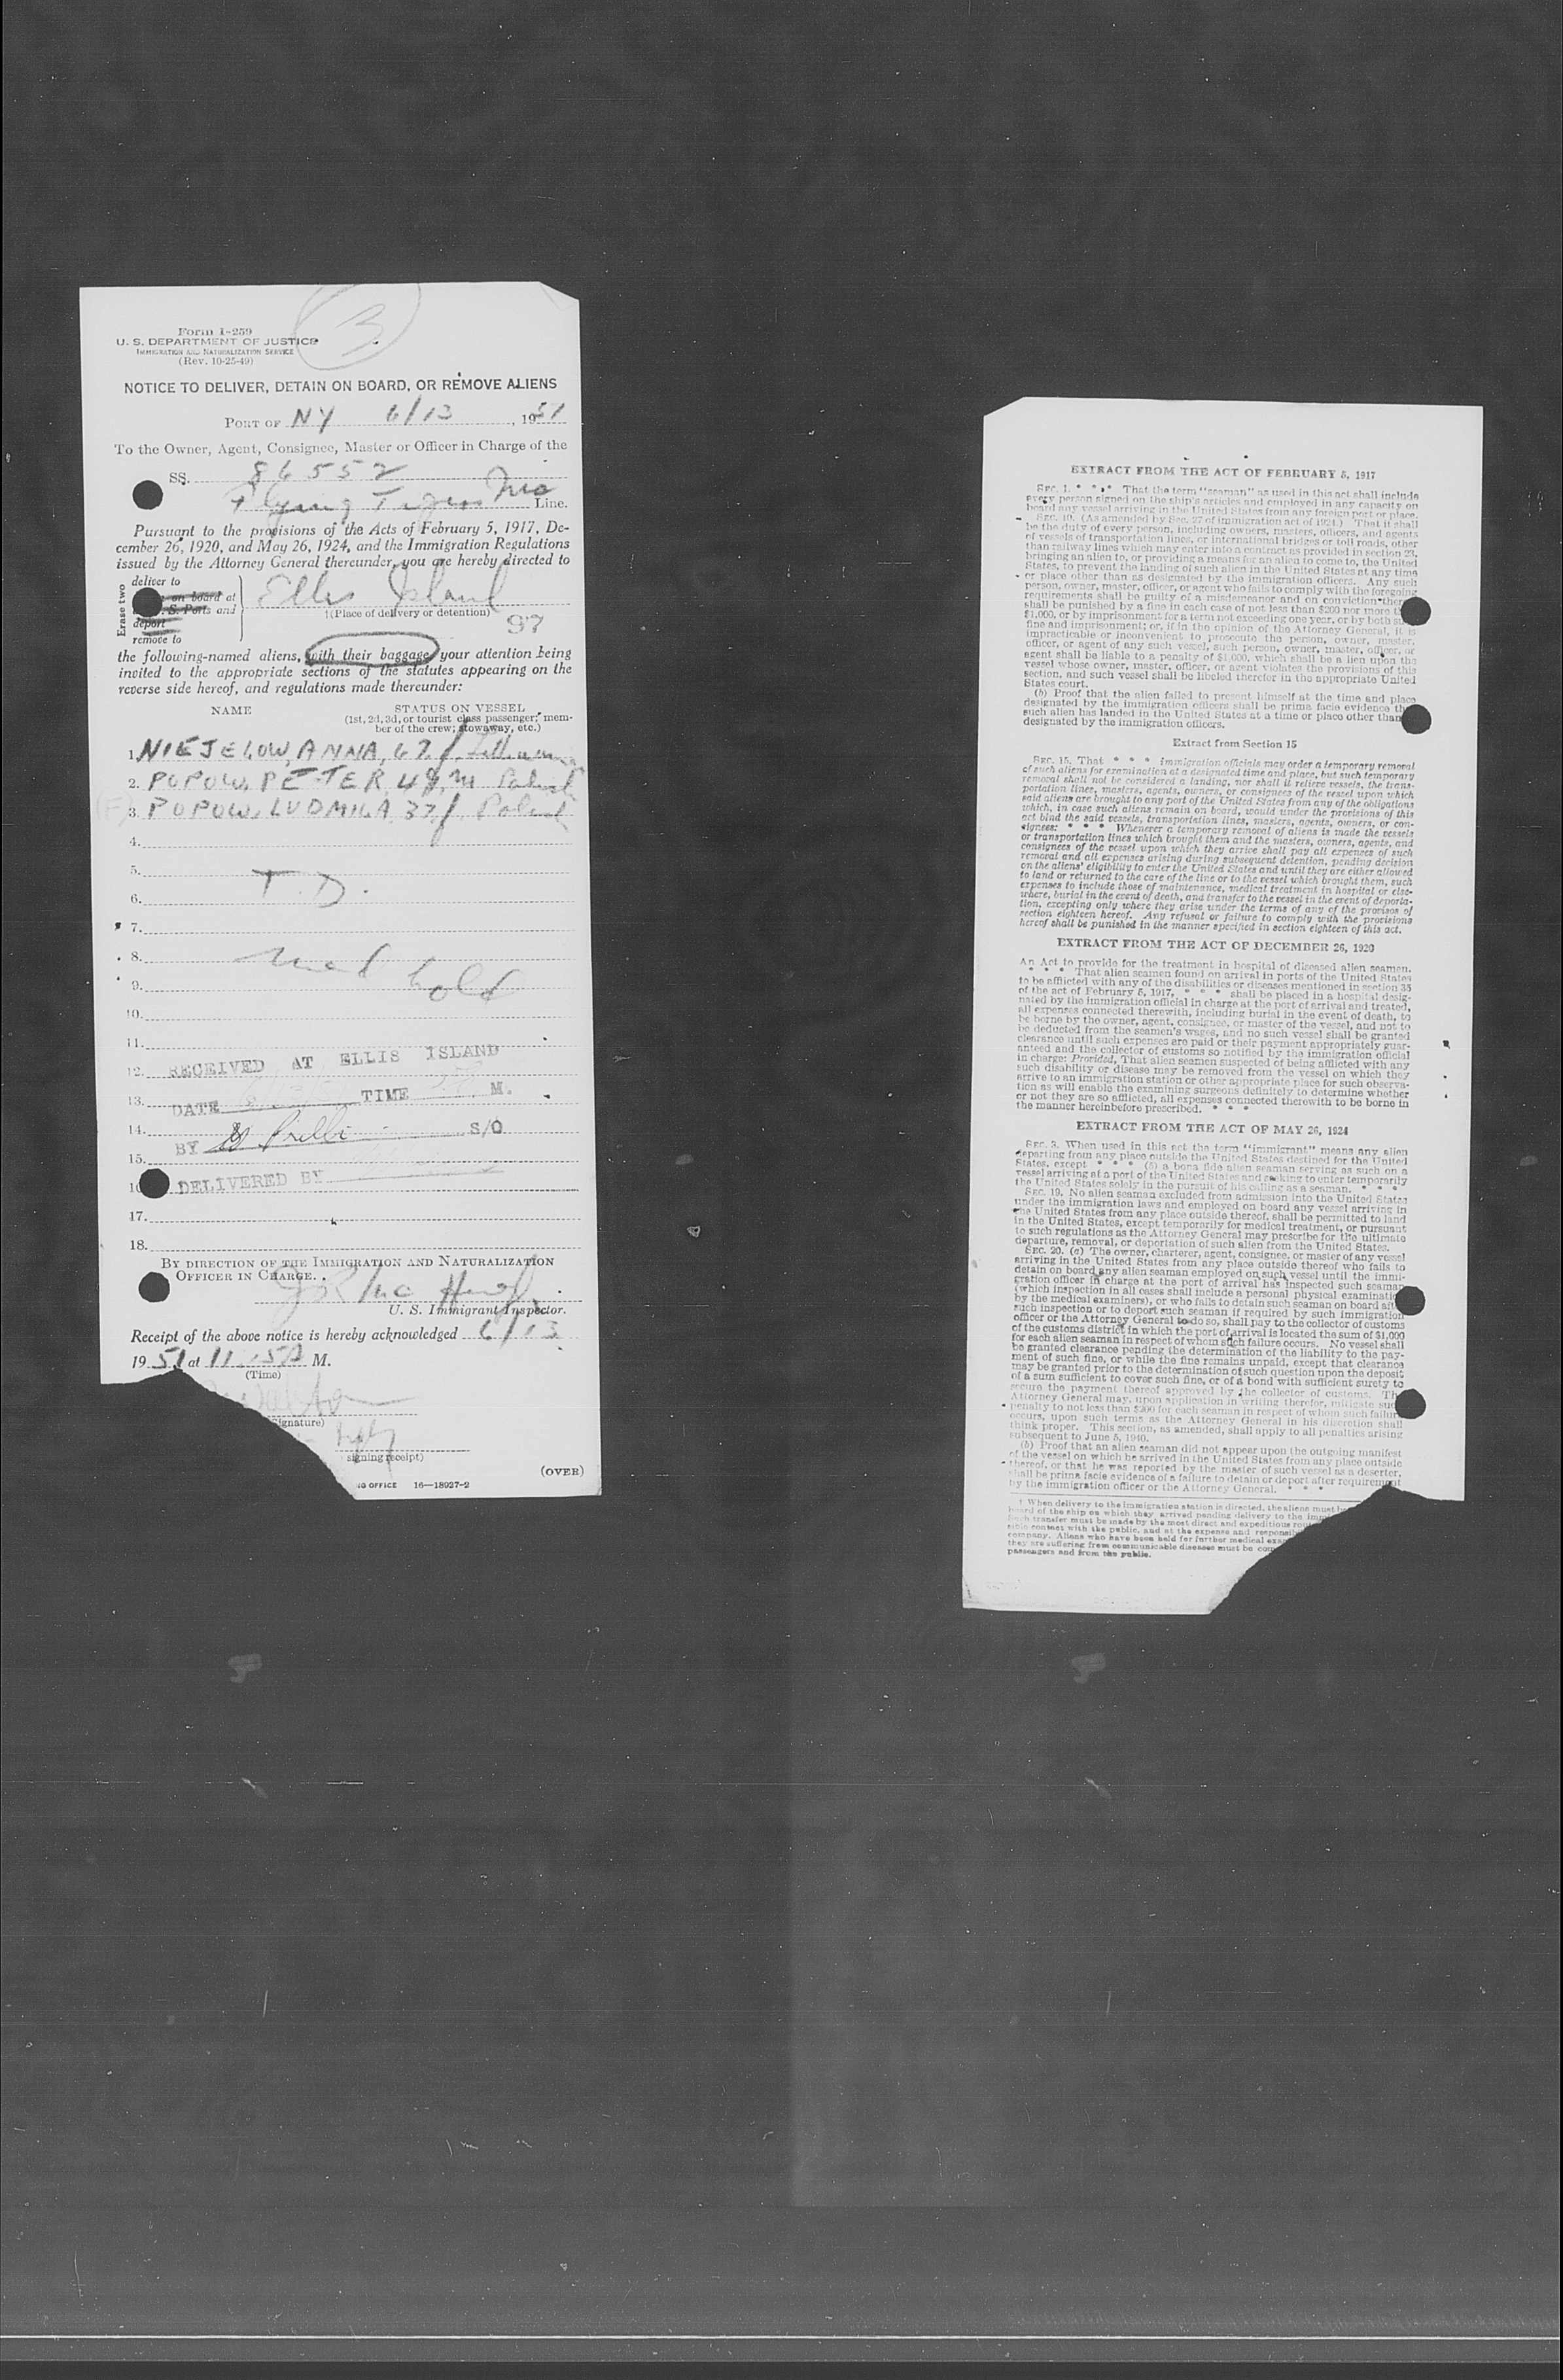 3
Form I-259
U. S. DEPARTMENT OF JUSTICE
IMMIGRATION AND NATURALIZATION SERVICE
(Rev. 10-25-49)
NOTICE TO DELIVER, DETAIN ON BOARD, OR REMOVE ALIENS
PORT OF NY 6/13, 1951
To the Owner, Agent, Consignee, Master or Officer in Charge of the
SS. 86552
Flying Tigers Inc Line.
Pursuant to the provisions of the Acts of February 5, 1917, De-
cember 26, 1920, and May 26, 1924, and the Immigration Regulations
issued by the Attorney General thereunder, you are hereby directed to
Erase two
deliver to
on board at
S. Ports and
deport
remove to
Ellis Island
†(Place of delivery or detention)
97
the following-named aliens, with their baggage, your attention being
invited to the appropriate sections of the statutes appearing on the
reverse side hereof, and regulations made thereunder:
NAME STATUS ON VESSEL
(1st, 2d, 3d, or tourist class passenger; mem-
ber of the crew; stowaway, etc.)
1. NIEJELOW, ANNA, 67, f
2. POPOW, PETER, 48, m Polish
3. POPOW, LUDMILA 37, f Polish
4.
5.
T.D.
6.
7.
8. med
9. hold
10.
11.
12. RECEIVED AT ELLIS ISLAND
13. DATE TIME M.
14.
BY S/O
15.
DELIVERED BY
17.
18.
BY DIRECTION OF THE IMMIGRATION AND NATURALIZATION
OFFICER IN CHARGE.
U. S. Immigrant Inspector.
Receipt of the above notice is hereby acknowledged 6/13
1951 at 11 M.
(Time)
signing receipt)
(OVER)
OFFICE 16—18027-2
EXTRACT FROM THE ACT OF FEBRUARY 5, 1917
SEC. 1. * * * That the term "seaman" as used in this act shall include
every person signed on the ship's articles and employed in any capacity on
board any vessel arriving in the United States from any foreign port or place.
SEC. 10. (As amended by Sec. 27 of immigration act of 1924.) That it shall
be the duty of every person, including owners, masters, officers, and agents
of vessels of transportation lines, or international bridges or toll roads, other
than railway lines which may enter into a contract as provided in section 23,
bringing an alien to, or providing a means for an alien to come to, the United
States, to prevent the landing of such alien in the United States at any time
or place other than as designated by the immigration officers. Any such
person, owner, master, officer, or agent who fails to comply with the foregoing
requirements shall be guilty of a misdemeanor and on conviction
shall be punished by a fine in each case of not less than $200 nor more
$1,000, or by imprisonment for a term not exceeding one year, or by both
fine and imprisonment; or, if in the opinion of the Attorney General, it is
impracticable or inconvenient to prosecute the person, owner, master,
officer, or agent of any such vessel, such person, owner, master, officer, or
agent shall be liable to a penalty of $1,000, which shall be a lien upon the
vessel whose owner, master, officer, or agent violates the provisions of this
section, and such vessel shall be libeled therefor in the appropriate United
States court.
(b) Proof that the alien failed to present himself at the time and place
designated by the immigration officers shall be prima facie evidence
such alien has landed in the United States at a time or place other than
designated by the immigration officers.
Extract from Section 15
SEC. 15. That * * * immigration officials may order a temporary removal
of such aliens for examination at a designated time and place, but such temporary
removal shall not be considered a landing, nor shall it relieve vessels, the trans-
portation lines, masters, agents, owners, or consignees of the vessel upon which
said aliens are brought to any port of the United States from any of the obligations
which, in case such aliens remain on board, would under the provisions of this
act bind the said vessels, transportation lines, masters, agents, owners, or con-
signees: * * * Whenever a temporary removal of aliens is made the vessels
or transportation lines which brought them and the masters, owners, agents, and
consignees of the vessel upon which they arrive shall pay all expenses of such
removal and all expenses arising during subsequent detention, pending decision
on the aliens' eligibility to enter the United States and until they are either allowed
to land or returned to the care of the line or to the vessel which brought them, such
expenses to include those of maintenance, medical treatment in hospital or else-
where, burial in the event of death, and transfer to the vessel in the event of deporta-
tion, excepting only where they arise under the terms of any of the provisos of
section eighteen hereof. Any refusal or failure to comply with the provisions
hereof shall be punished in the manner specified in section eighteen of this act.
EXTRACT FROM THE ACT OF DECEMBER 26, 1920
An Act to provide for the treatment in hospital of diseased alien seamen.
* * * That alien seamen found on arrival in ports of the United States
to be afflicted with any of the disabilities or diseases mentioned in section 35
of the act of February 5, 1917, * * * shall be placed in a hospital desig-
nated by the immigration official in charge at the port of arrival and treated,
all expenses connected therewith, including burial in the event of death, to
be borne by the owner, agent, consignee, or master of the vessel, and not to
be deducted from the seamen's wages, and no such vessel shall be granted
clearance until such expenses are paid or their payment appropriately guar-
anteed and the collector of customs so notified by the immigration official
in charge: Provided, That alien seamen suspected of being afflicted with any
such disability or disease may be removed from the vessel on which they
arrive to an immigration station or other appropriate place for such observa-
tion as will enable the examining surgeons definitely to determine whether
or not they are so afflicted, all expenses connected therewith to be borne in
the manner hereinbefore prescribed. * * *
EXTRACT FROM THE ACT OF MAY 26, 1924
SEC. 3. When used in this act the term "immigrant" means any alien
departing from any place outside the United States destined for the United
States, except * * * (5) a bona fide alien seaman serving as such on a
vessel arriving at a port of the United States and seeking to enter temporarily
the United States solely in the pursuit of his calling as a seaman. * * *
SEC. 19. No alien seaman excluded from admission into the United States
under the immigration laws and employed on board any vessel arriving in
the United States from any place outside thereof, shall be permitted to land
in the United States, except temporarily for medical treatment, or pursuant
to such regulations as the Attorney General may prescribe for the ultimate
departure, removal, or deportation of such alien from the United States.
SEC. 20. (a) The owner, charterer, agent, consignee, or master of any vessel
arriving in the United States from any place outside thereof who fails to
detain on board any alien seaman employed on such vessel until the immi-
gration officer in charge at the port of arrival has inspected such seaman
(which inspection in all cases shall include a personal physical examination
by the medical examiners), or who fails to detain such seaman on board after
such inspection or to deport such seaman if required by such immigration
officer or the Attorney General to do so, shall pay to the collector of customs
of the customs district in which the port of arrival is located the sum of $1,000
for each alien seaman in respect of whom such failure occurs. No vessel shall
be granted clearance pending the determination of the liability to the pay-
ment of such fine, or while the fine remains unpaid, except that clearance
may be granted prior to the determination of such question upon the deposit
of a sum sufficient to cover such fine, or of a bond with sufficient surety to
secure the payment thereof approved by the collector of customs. The
Attorney General may, upon application in writing therefor, mitigate such
penalty to not less than $200 for each seaman in respect of whom such failure
occurs, upon such terms as the Attorney General in his discretion shall
think proper. This section, as amended, shall apply to all penalties arising
subsequent to June 5, 1940.
(b) Proof that an alien seaman did not appear upon the outgoing manifest
of the vessel on which he arrived in the United States from any place outside
thereof, or that he was reported by the master of such vessel as a deserter,
shall be prima facie evidence of a failure to detain or deport after requirement
by the immigration officer or the Attorney General. * * *
† When delivery to the immigration station is directed, the aliens must
board of the ship on which they arrived pending delivery to the
Such transfer must be made by the most direct and expeditious
contact with the public, and at the expense and
company. Aliens who have been held for further medical
they are suffering from communicable diseases must be
passengers and from the public.